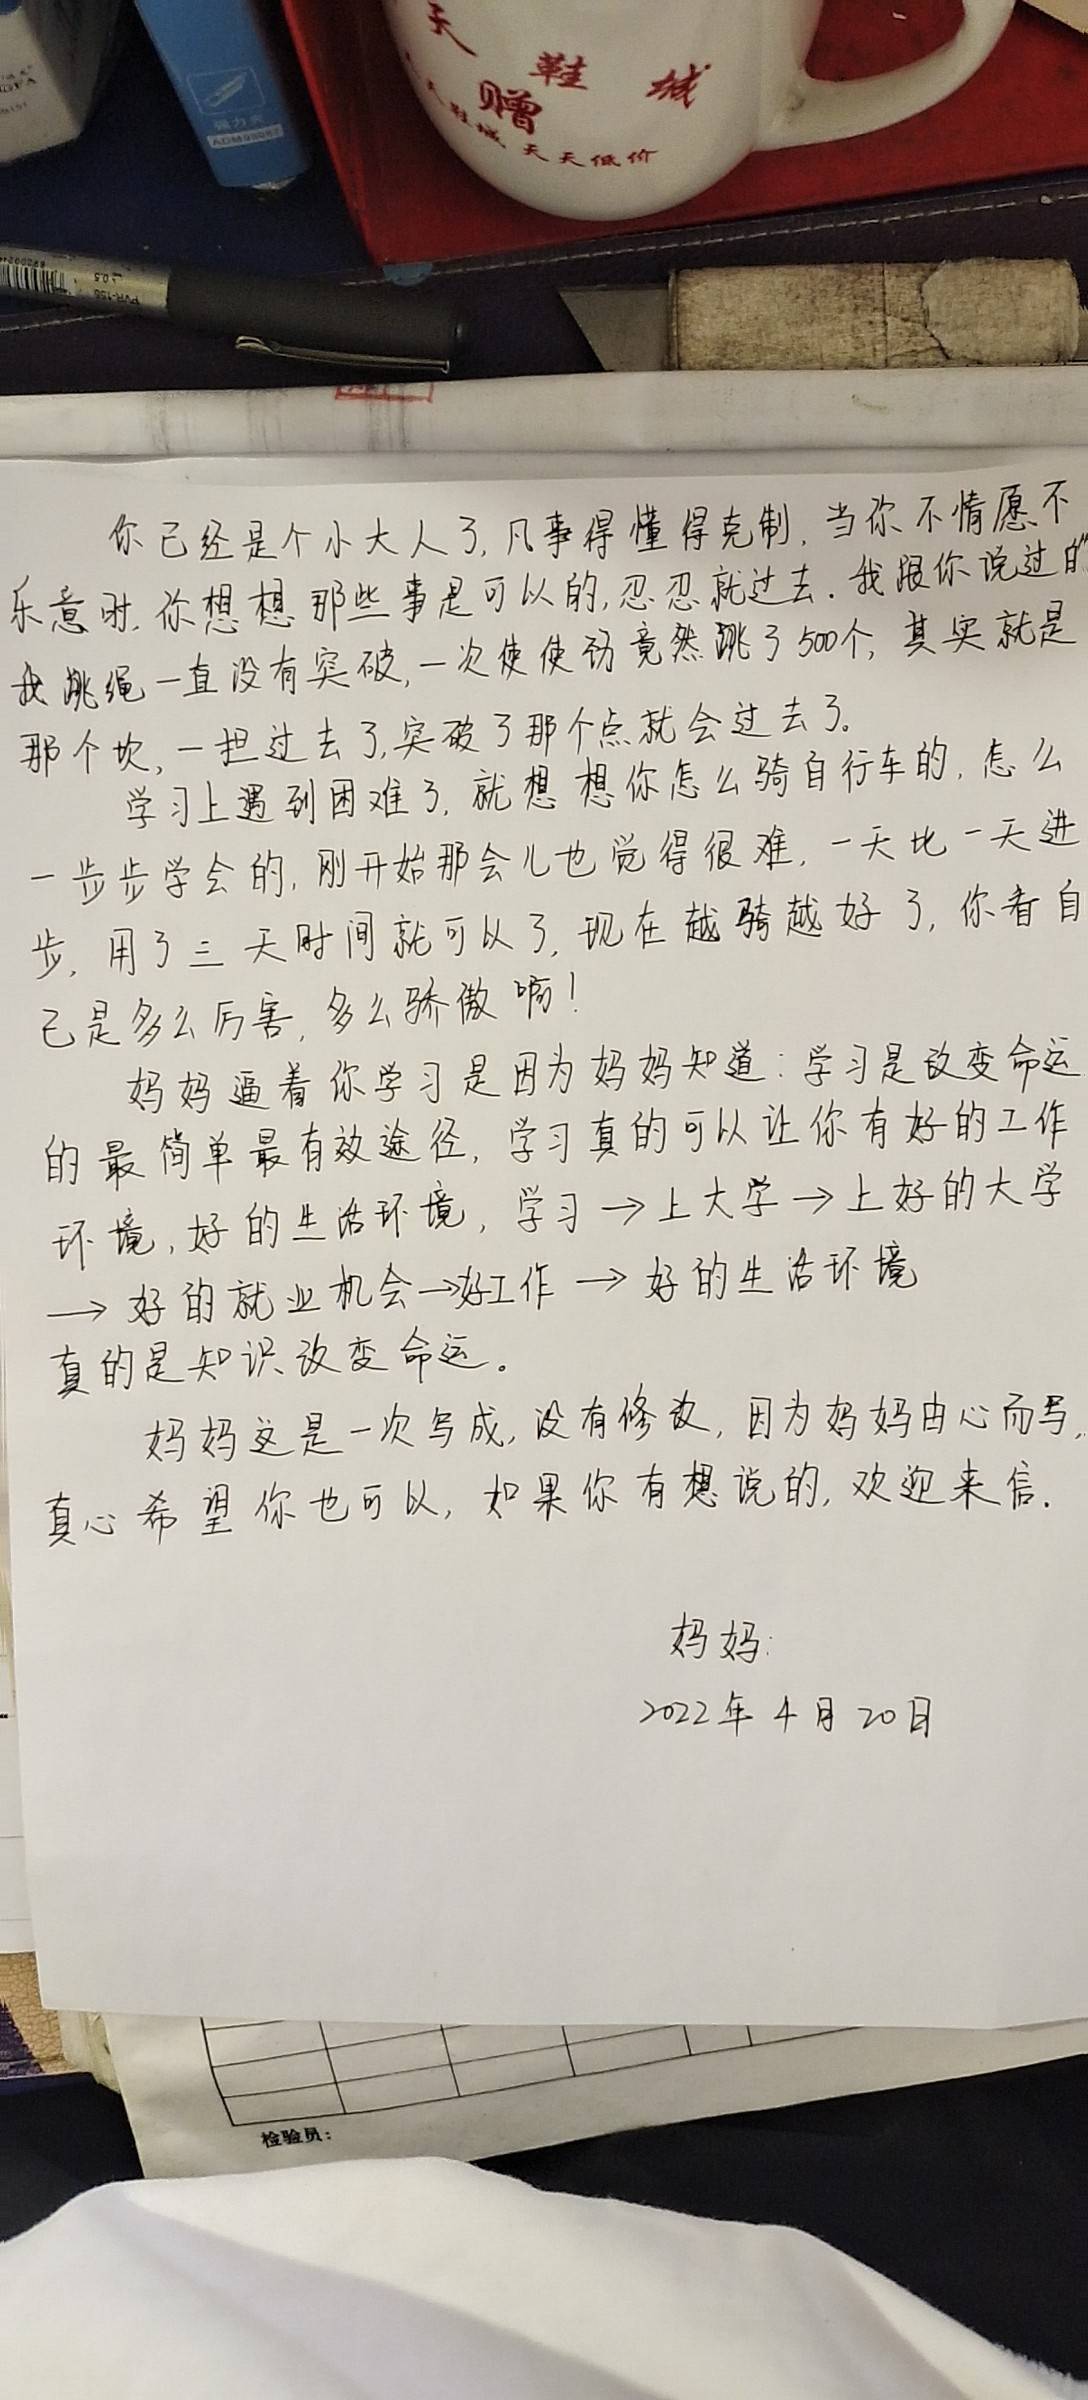 天 鞋 城
赠
鞋城 天天低价
强力夹
ADM95087
PVR-155
0.5
你已经是个小大人了,凡事得懂得克制,当你不情愿不
乐意时,你想想那些事是可以的,忍忍就过去.我跟你说过的"
我跳绳一直没有突破,一次使使劲竟然跳了500个,其实就是
那个坎,一担过去了,突破了那个点就会过去了。
学习上遇到困难了,就想想你怎么骑自行车的,怎么
一步步学会的,刚开始那会儿也觉得很难,一天比一天进
步,用了三天时间就可以了,现在越骑越好了,你看自
己是多么厉害,多么骄傲啊!
妈妈逼着你学习是因为妈妈知道:学习是改变命运
的最简单最有效途径,学习真的可以让你有好的工作
环境,好的生活环境,学习→上大学→上好的大学
→好的就业机会→好工作→好的生活环境
真的是知识改变命运。
妈妈这是一次写成,没有修改,因为妈妈由心而写,
真心希望你也可以,如果你有想说的,欢迎来信.
妈妈:
2022年4月20日
检验员: